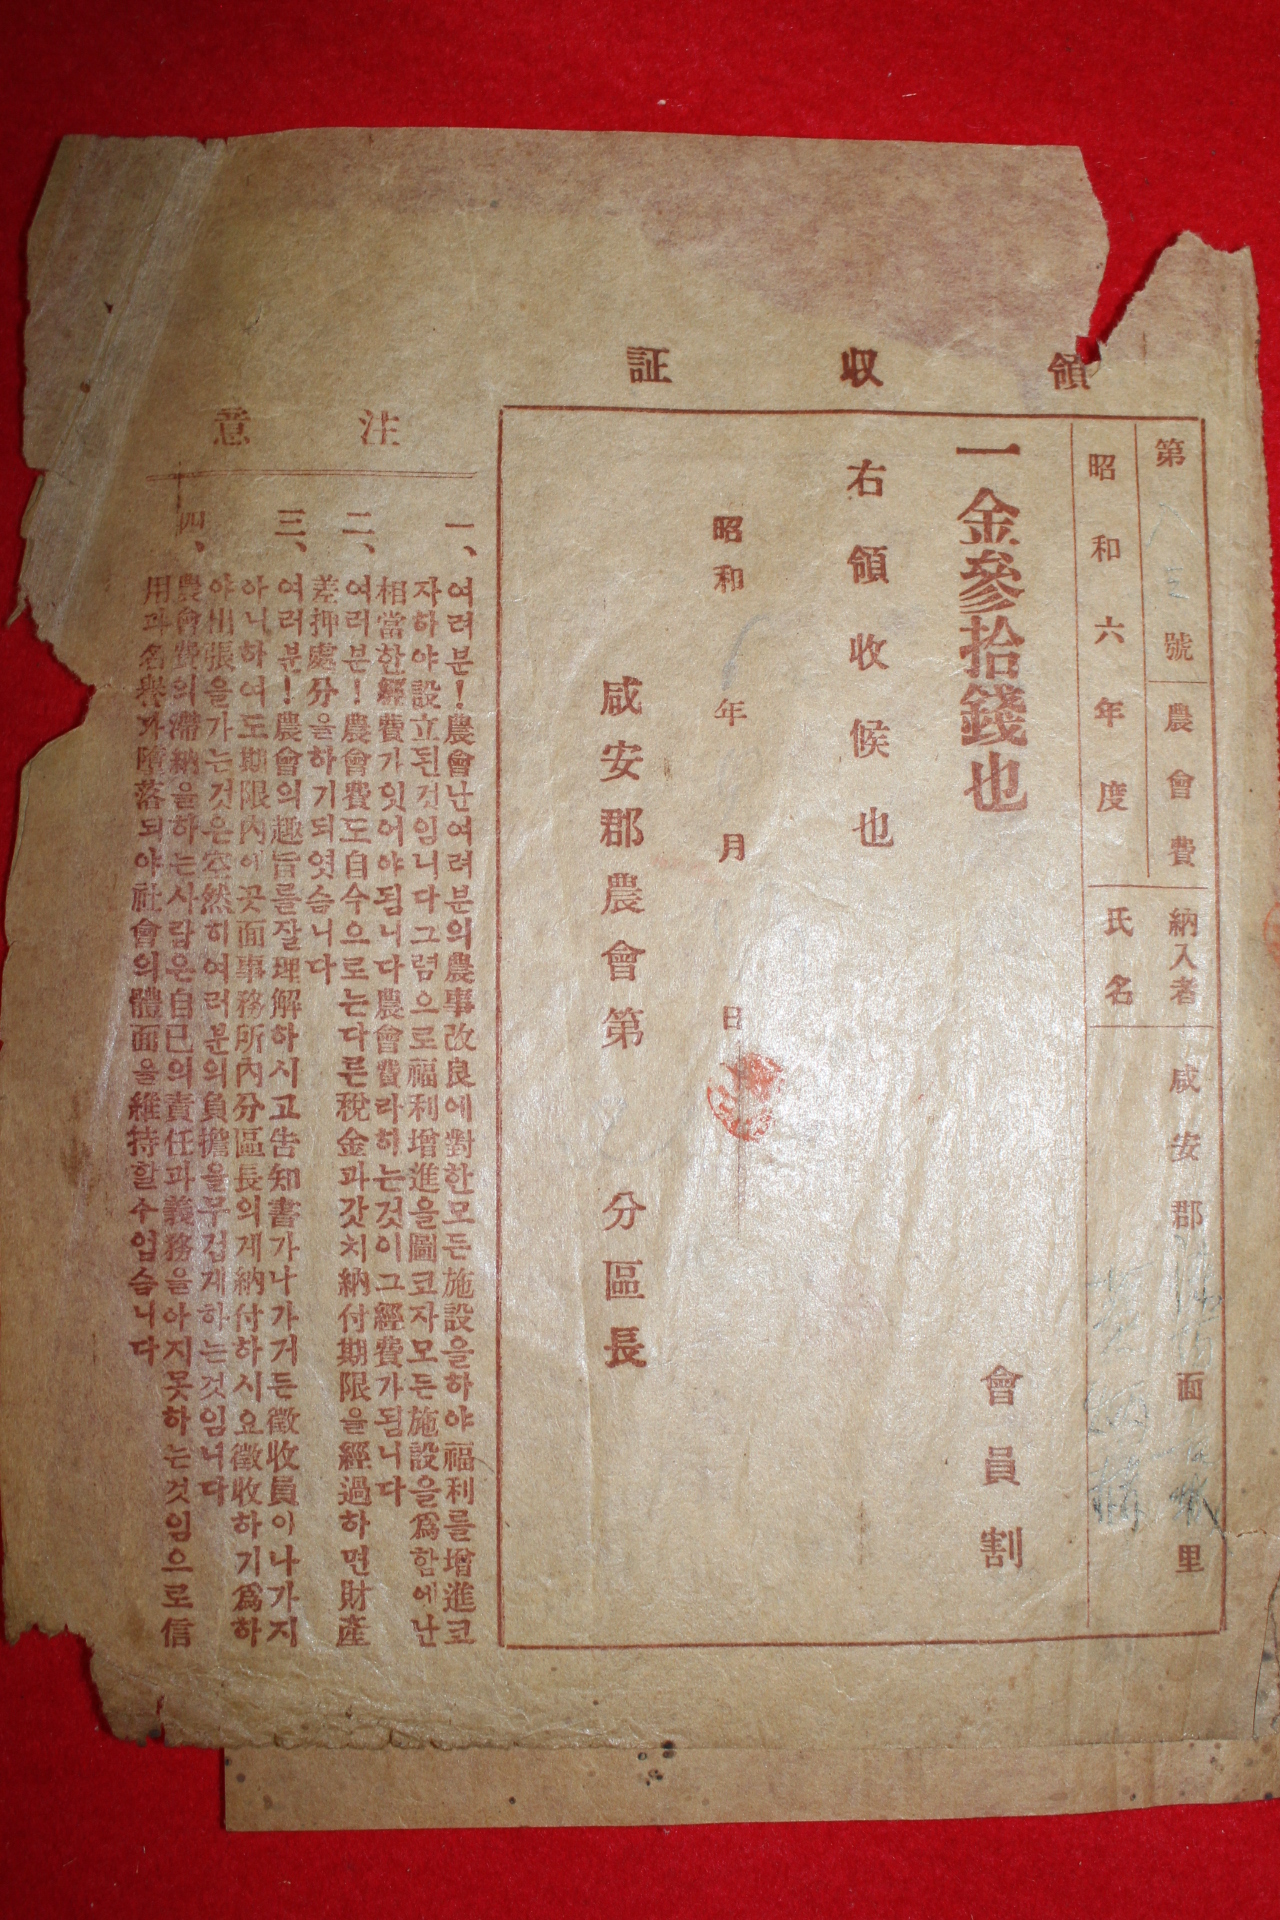 領收証
第 八三 號 農會費
昭和六年度
納入者
氏名
咸安郡 面 里
一金參拾錢也
會員割
右領收候也
昭和 六 年 月 日
咸安郡農會第 分區長
注意
一、여러분!農會난여러분의農事改良에對한모든施設을하야福利를增進코
자하야設立된것임니다그럼으로福利增進을圖코자모든施設을爲함에난
相當한經費가잇어야됨니다農會費라하는것이그經費가됨니다
二、여러분!農會費도自今으로는다른稅金과갓치納付期限을經過하면財產
差押處分을하기되엿슴니다
三、여러분!農會의趣旨를잘理解하시고告知書가나가거든徵收員이나가지
아니하여도期限內에곳面事務所內分區長의게納付하시요徵收하기爲하
야出張을가는것은空然히여러분의負擔을무겁게하는것임니다
四、農會費의滯納을하는사람은自己의責任과義務을아지못하는것임으로信
用과名譽가墮落되야社會의體面을維持할수업슴니다